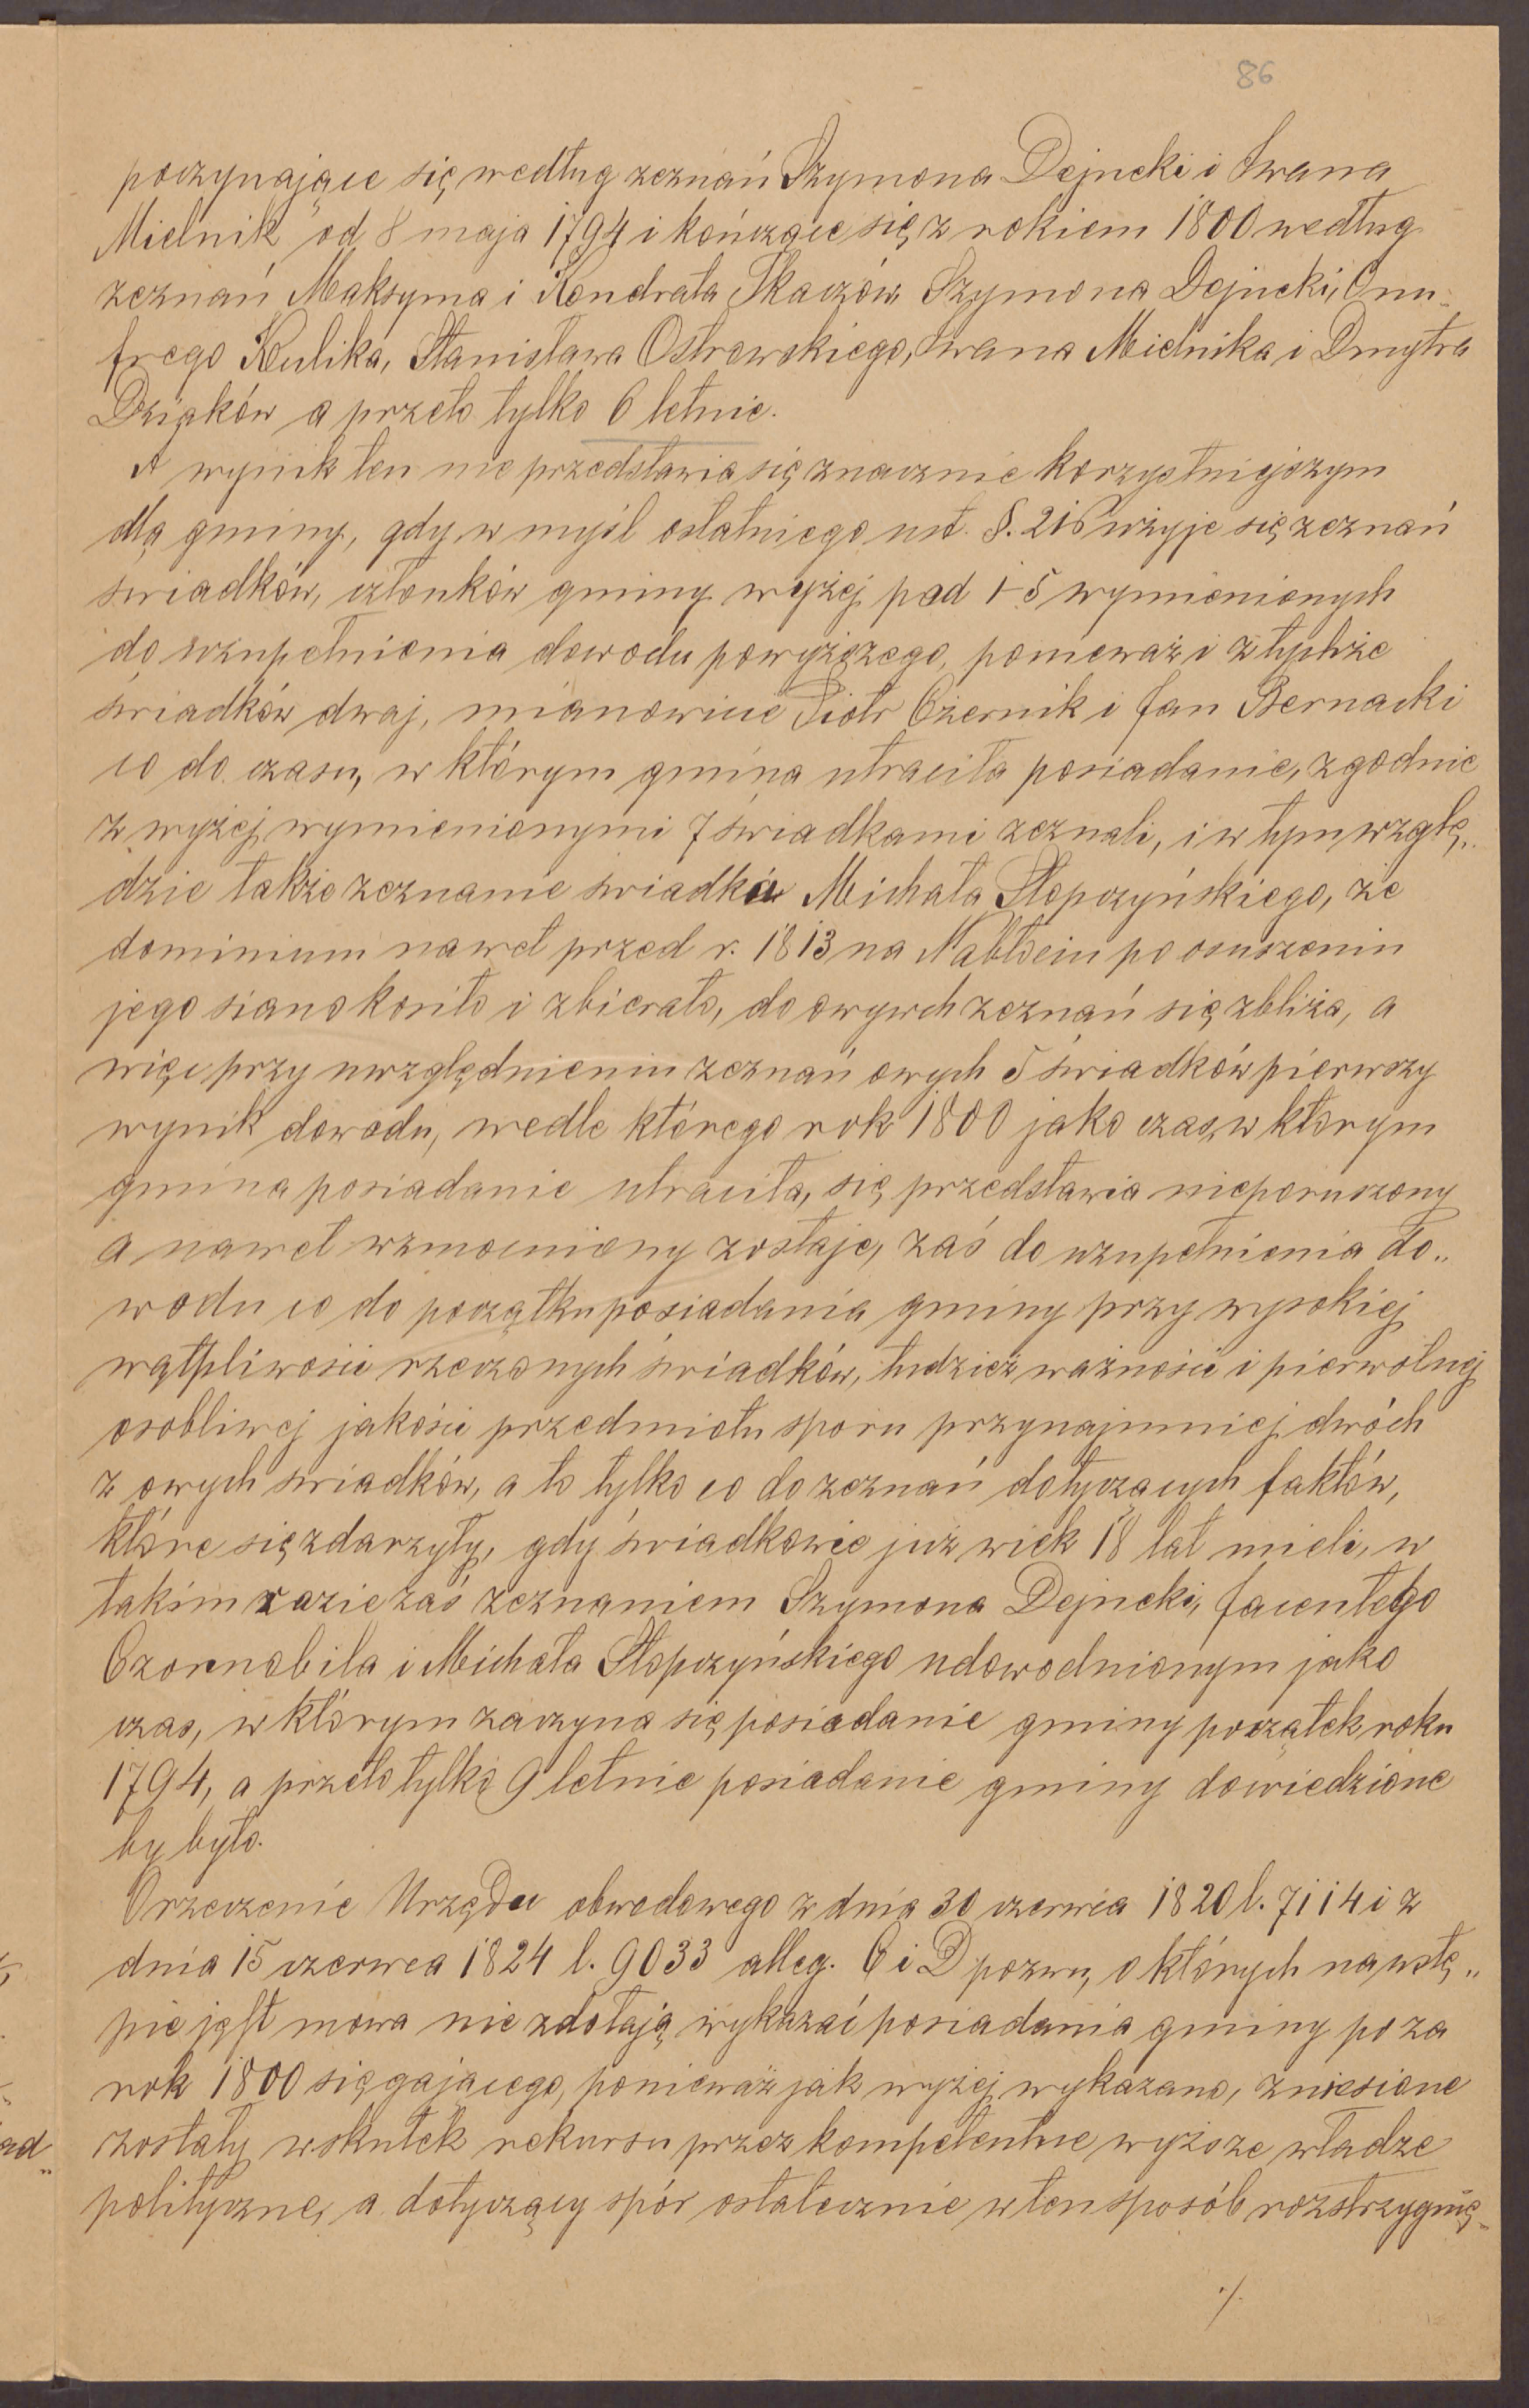 86
poczynające się według zeznań Szymona Dejneki i Iwana
Mielnik od 8 maja 1794 i kończące się z rokiem 1800 według
zeznań Maksyma i Kondrata Tkaczów, Szymona Dejneki, Onu-
frego Kulika, Stanisława Ostrowskiego, Iwana Mielnika i Dmytra
Dziąków a przeto tylko 6 letnie.
A wynik ten nie przedstawia się znacznie korzystniejszym
dla gminy, gdy w myśl ostatniego ust. §. 216 użyje się zeznań
świadków, członków gminy wyżej pod 1-5 wymienionych
do uzupełnienia dowodu powyższego, ponieważ i z tychże
świadków dwaj, mianowicie Piotr Czernik i Jan Bernacki
co do czasu, w którym gmina utraciła posiadanie, zgodnie
z wyżej wymienionymi 7 świadkami zeznali, i w tym wzglę„
dzie także zeznanie świadka Michała Stopczyńskiego, że
dominium nawet przed r. 1813 na Nabłociu po osuszeniu
jego siano kosiło i zbierało, do owych zeznań się zbliża, a
więc przy uwzględnieniu zeznań owych 5 świadków pierwszy
wynik dowodu, wedle którego rok 1800 jako czas, w którym
gmina posiadanie utraciła, się przedstawia nieporuszony
a nawet wzmocniony zostaje, zaś do uzupełnienia do„
wodu co do początku posiadania gminy przy wysokiej
wątpliwości rzeczonych świadków, tudzież ważności i pierwotnej
osobliwej jakości przedmiotu sporu przynajmniej dwóch
z owych świadków, a to tylko co do zeznań dotyczących faktów,
które się zdarzyły, gdy świadkowie już wiek 18 lat mieli, w
takim razie zaś zeznaniem Szymona Dejneki, Jacentego
Czornobila i Michała Stopczyńskiego udowodnionym jako
czas, w którym zaczyna się posiadanie gminy początek roku
1794, a przeto tylko 9 letnie posiadanie gminy dowiedzione
by było.
Orzeczenie Urzędu obwodowego z dnia 30 czerwca 1820 l. 7114 i z
dnia 15 czerwca 1824 l. 9033 alleg. C i D pozwu, o których na wstę„
pie jest mowa nie zdołają wykazać posiadania gminy po za
rok 1800 sięgającego, ponieważ jak wyżej wykazano, zniesione
zostały wskutek rekursu przez kompetentne wyższe władze
polityczne, a dotyczący spór ostatecznie w ten sposób rozstrzygnię„
./.
ad„